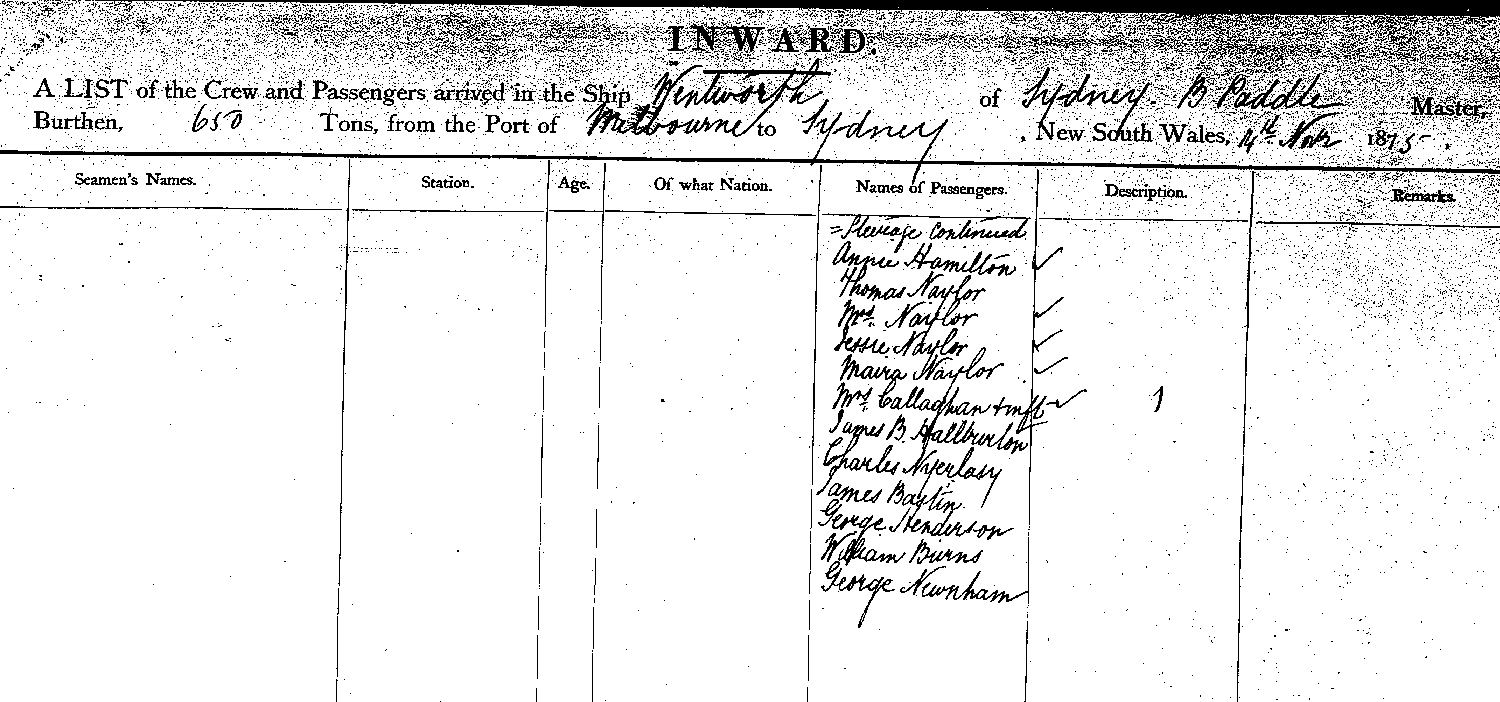 INWARD.
A LIST of the Crew and Passengers arrived in the Ship Wentworth of Sydney. B Paddle Master,
Burthen, 650 Tons, from the Port of Melbourne to Sydney, New South Wales, 14th Novr 1875.
Seamen's Names. Station. Age. Of what Nation. Names of Passengers. Description. Remarks.
=Steerage Continued
Annie Hamilton ✓
Thomas Naylor
Mrs. Naylor ✓
Jessie Naylor ✓
Maira Naylor ✓
Mrs. Callaghan + inft ✓ 1
James B. Halburton
Charles
James Bastin
George Henderson
William Burns
George Newnham